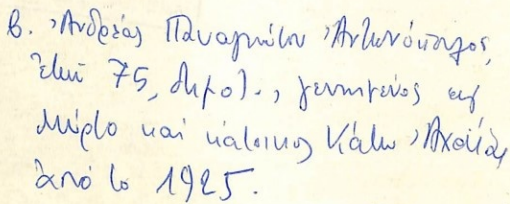 β. Ἀνδρέας Παναγιώτου Ἀντωνόπουλος,
ἐτῶν 75, Δημοτ., γεννημένος εἰς
Μύρτο καὶ κάτοικος Κάτω Ἀχαΐας
ἀπὸ τὸ 1925.